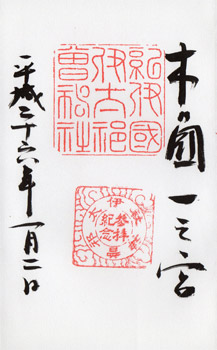 木の國一之宮
紀伊國
伊太祁
曽神社
参拝
紀念
平成二十六年一月二日